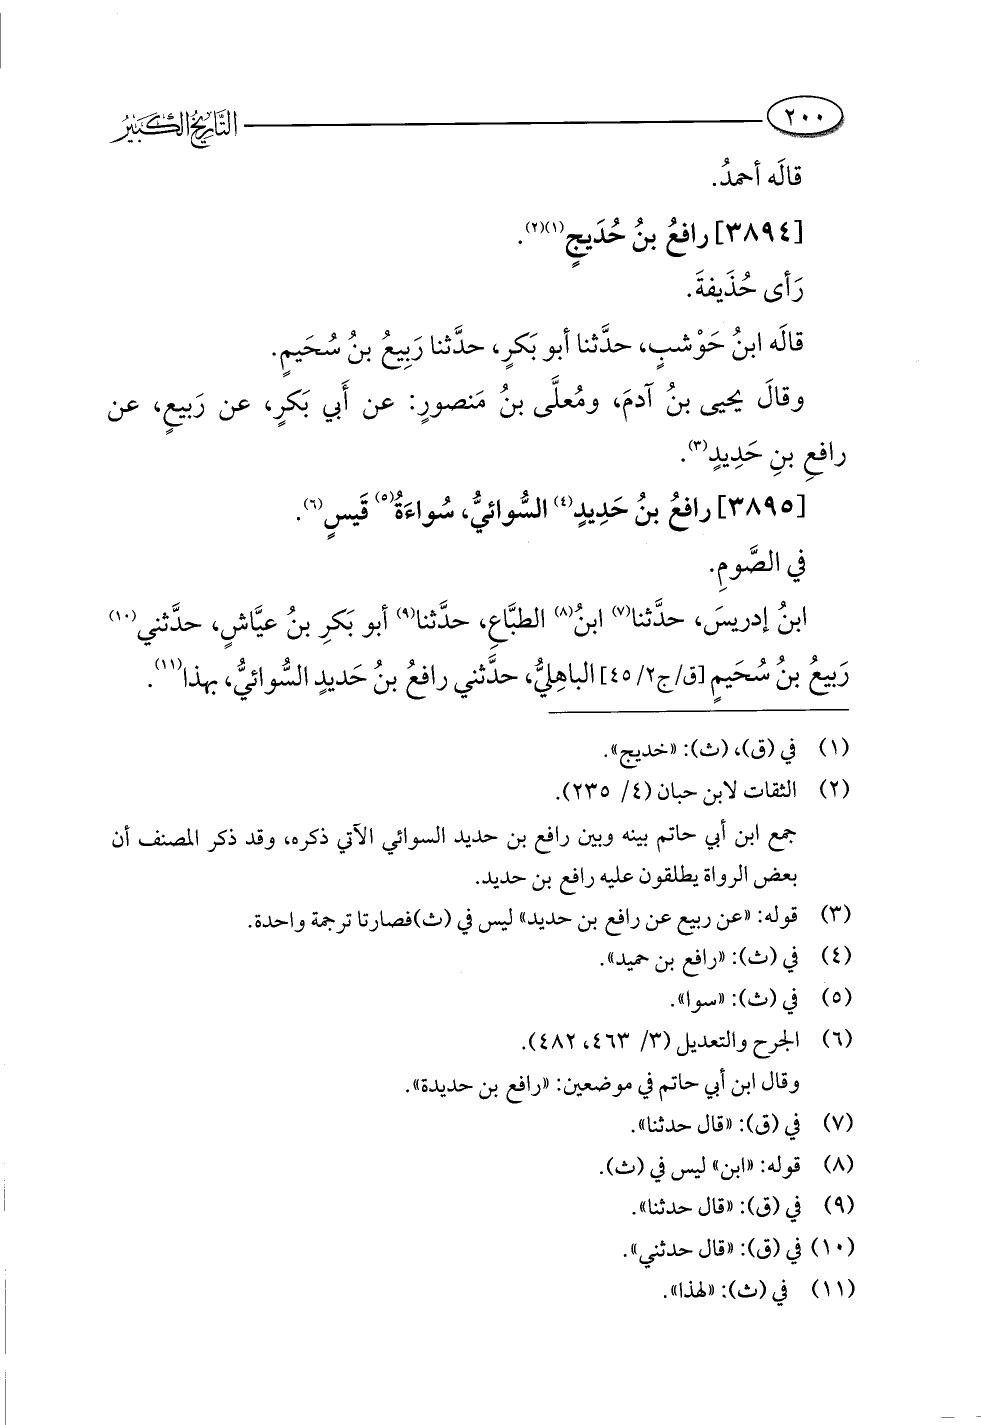 ٢٠٠ التَّاريخُ الكَبيرُ
قالَه أحمدُ.
[٣٨٩٤] رافعُ بنُ حُدَيجٍ(١)(٢).
رَأى حُذَيفةَ.
قالَه ابنُ حَوْشبٍ، حدَّثنا أبو بَكرٍ، حدَّثنا رَبِيعُ بنُ سُحَيمٍ.
وقالَ يحيى بنُ آدمَ، ومُعلَّى بنُ مَنصورٍ: عن أَبي بَكرٍ، عن رَبيعٍ، عن
رافعِ بنِ حَدِيدٍ(٣).
[٣٨٩٥] رافعُ بنُ حَدِيدٍ(٤) السُّوائيُّ، سُواءَةُ(٥) قَيسٍ(٦).
في الصَّومِ.
ابنُ إدريسَ، حدَّثنا(٧) ابنُ(٨) الطبَّاعِ، حدَّثنا(٩) أبو بَكرِ بنُ عيَّاشٍ، حدَّثني(١٠)
رَبيعُ بنُ سُحَيمٍ [ق/ج٢/ ٤٥] الباهِليُّ، حدَّثني رافعُ بنُ حَديدٍ السُّوائيُّ، بهذا(١١).
(١) في (ق)، (ث): «خديج».
(٢) الثقات لابن حبان (٤/ ٢٣٥).
جمع ابن أبي حاتم بينه وبين رافع بن حديد السوائي الآتي ذكره، وقد ذكر المصنف أن
بعض الرواة يطلقون عليه رافع بن حديد.
(٣) قوله: «عن ربيع عن رافع بن حديد» ليس في (ث)فصارتا ترجمة واحدة.
(٤) في (ث): «رافع بن حميد».
(٥) في (ث): «سوا».
(٦) الجرح والتعديل (٣/ ٤٦٣، ٤٨٢).
وقال ابن أبي حاتم في موضعين: «رافع بن حديدة».
(٧) في (ق): «قال حدثنا».
(٨) قوله: «ابن» ليس في (ث).
(٩) في (ق): «قال حدثنا».
(١٠) في (ق): «قال حدثني».
(١١) في (ث): «لهذا».